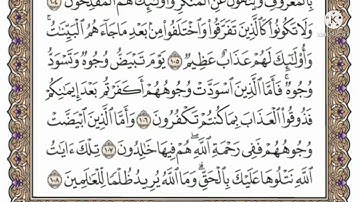 بِالْمَعْرُوفِ وَيَنْهَوْنَ عَنِ الْمُنكَرِ وَأُولَٰئِكَ هُمُ الْمُفْلِحُونَ ١٠٤
وَلَا تَكُونُوا كَالَّذِينَ تَفَرَّقُوا وَاخْتَلَفُوا مِن بَعْدِ مَا جَاءَهُمُ الْبَيِّنَاتُ ۚ
وَأُولَٰئِكَ لَهُمْ عَذَابٌ عَظِيمٌ ١٠٥ يَوْمَ تَبْيَضُّ وُجُوهٌ وَتَسْوَدُّ
وُجُوهٌ ۚ فَأَمَّا الَّذِينَ اسْوَدَّتْ وُجُوهُهُمْ أَكَفَرْتُم بَعْدَ إِيمَانِكُمْ
فَذُوقُوا الْعَذَابَ بِمَا كُنتُمْ تَكْفُرُونَ ١٠٦ وَأَمَّا الَّذِينَ ابْيَضَّتْ
وُجُوهُهُمْ فَفِي رَحْمَةِ اللَّهِ هُمْ فِيهَا خَالِدُونَ ١٠٧ تِلْكَ آيَاتُ
اللَّهِ نَتْلُوهَا عَلَيْكَ بِالْحَقِّ ۗ وَمَا اللَّهُ يُرِيدُ ظُلْمًا لِّلْعَالَمِينَ ١٠٨